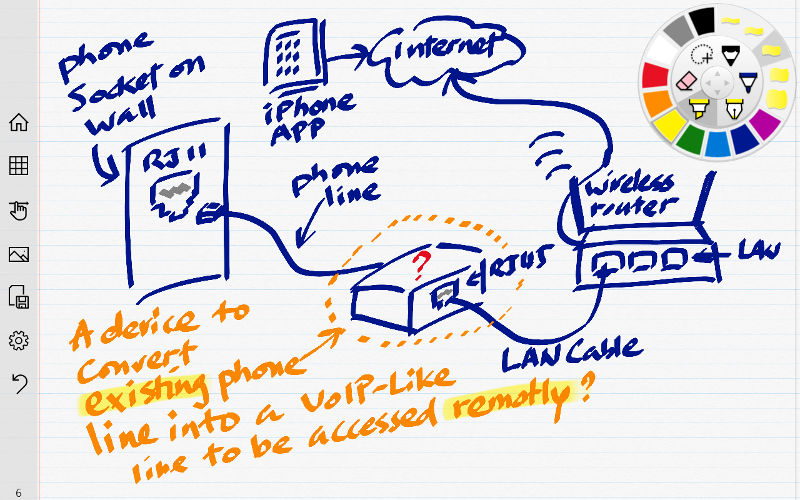 phone
Socket on
wall
RJ11
iPhone
APP
internet
phone
line
wireless
router
LAN
?
RJ45
LAN Cable
A device to
convert
existing phone
line into a VoIP-Like
line to be accessed remotly?
6